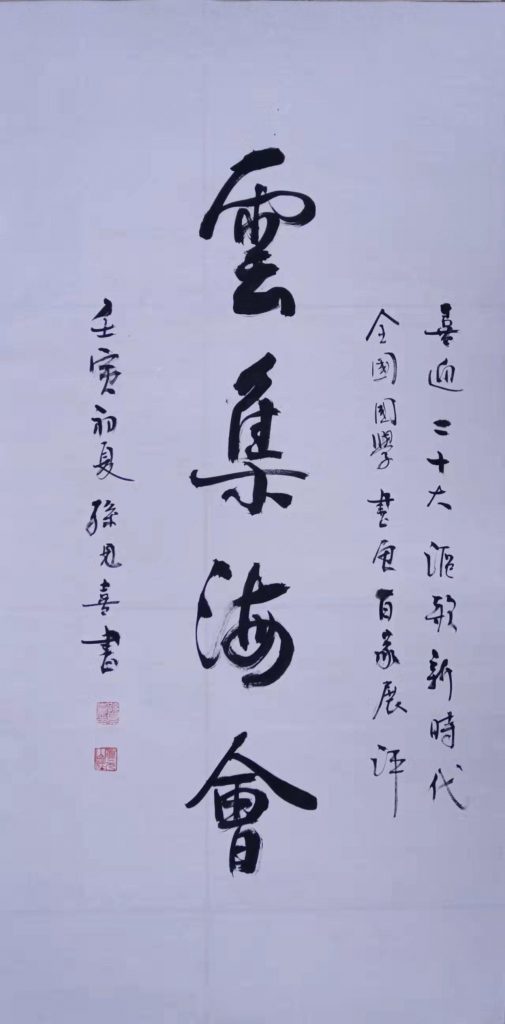 喜迎二十大 讴歌新時代
全國國學書画百家展
雲集海會
壬寅初夏 孫見喜書